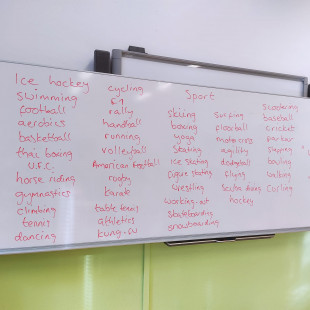 Sport
Ice hockey
swimming
football
aerobics
basketball
thai boxing
U.F.C.
horse riding
gymnastics
climbing
tennis
dancing
cycling
F1
rally
handball
running
volleyball
American football
rugby
karate
table tennis
athletics
kung-fu
skiing
boxing
yoga
skating
ice skating
figure skating
wrestling
working-out
skateboarding
snowboarding
surfing
floorball
motocross
agility
dodgeball
flying
scuba diving
hockey
scootering
baseball
cricket
parkur
bowling
walking
curling